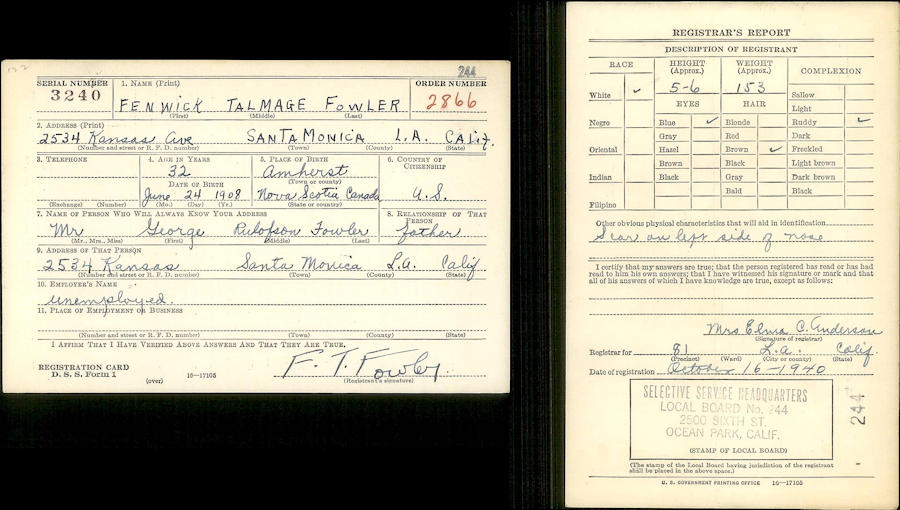 132
244
SERIAL NUMBER 1. NAME (Print) ORDER NUMBER
3240 FENWICK TALMAGE FOWLER 2866
(First) (Middle) (Last)
2. ADDRESS (Print)
2534 Kansas Ave SANTA MONICA L.A. CALIF.
(Number and street or R. F. D. number) (Town) (County) (State)
3. TELEPHONE 4. AGE IN YEARS 5. PLACE OF BIRTH 6. COUNTRY OF CITIZENSHIP
32 Amherst
DATE OF BIRTH (Town or county)
June 24 1908 Nova Scotia Canada U.S.
(Exchange) (Number) (Mo.) (Day) (Yr.) (State or country)
7. NAME OF PERSON WHO WILL ALWAYS KNOW YOUR ADDRESS 8. RELATIONSHIP OF THAT PERSON
Mr George Rulofson Fowler father
(Mr., Mrs., Miss) (First) (Middle) (Last)
9. ADDRESS OF THAT PERSON
2534 Kansas Santa Monica L.A. Calif
(Number and street or R. F. D. number) (Town) (County) (State)
10. EMPLOYER'S NAME
unemployed.
11. PLACE OF EMPLOYMENT OR BUSINESS
(Number and street or R. F. D. number) (Town) (County) (State)
I AFFIRM THAT I HAVE VERIFIED ABOVE ANSWERS AND THAT THEY ARE TRUE.
REGISTRATION CARD F. T. Fowler
D. S. S. Form 1 (over) 16—17105 (Registrant's signature)
REGISTRAR'S REPORT
DESCRIPTION OF REGISTRANT
RACE HEIGHT (Approx.) WEIGHT (Approx.) COMPLEXION
White ✓ 5-6 153 Sallow
EYES HAIR Light
Negro Blue ✓ Blonde Ruddy ✓
Gray Red Dark
Oriental Hazel Brown ✓ Freckled
Brown Black Light brown
Indian Black Gray Dark brown
Bald Black
Filipino
Other obvious physical characteristics that will aid in identification
Scar on left side of nose
I certify that my answers are true; that the person registered has read or has had
read to him his own answers; that I have witnessed his signature or mark and that
all of his answers of which I have knowledge are true, except as follows:
Mrs. Elma C. Anderson
(Signature of registrar)
Registrar for 81 L.A. Calif.
(Precinct) (Ward) (City or county) (State)
Date of registration October 16—1940
SELECTIVE SERVICE HEADQUARTERS
LOCAL BOARD No. 244
2500 SIXTH ST.
OCEAN PARK, CALIF.
(STAMP OF LOCAL BOARD)
244
(The stamp of the Local Board having jurisdiction of the registrant
shall be placed in the above space.)
U. S. GOVERNMENT PRINTING OFFICE 16—17105